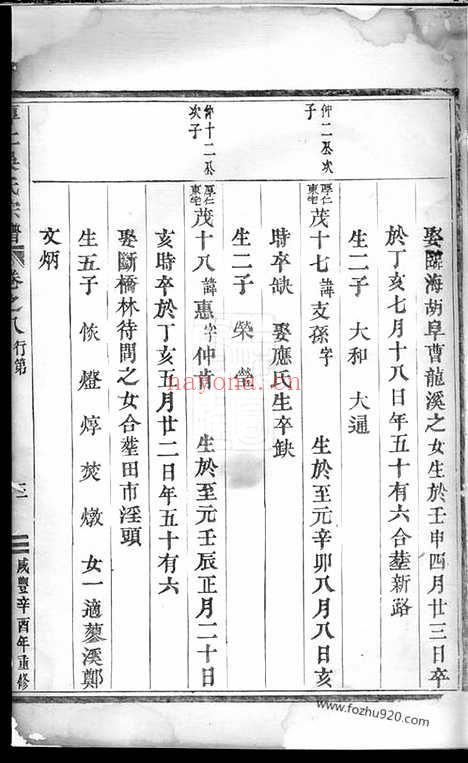 娶臨海胡阜曹龍溪之女生於壬申四月廿三日卒
於丁亥七月十八日年五十有六合塟新路
生二子 大和 大通
仲二公次子
厚仁東宅
茂十七 諱支孫 字 生於至元辛卯八月八日亥
時卒缺 娶應氏生卒缺
生二子 榮
仲十二公次子
厚仁東宅
茂十八 諱惠 字仲 生於至元壬辰正月二十日
亥時卒於丁亥五月廿二日年五十有六
娶斷橋林待問之女合塟田市淫頭
生五子 恢 燈 焞 熒 燉 女一適蓼溪鄭
文炳
吳氏宗譜 卷之八 行第
咸豐辛酉年重修
hayona.cn
www.fozhu920.com